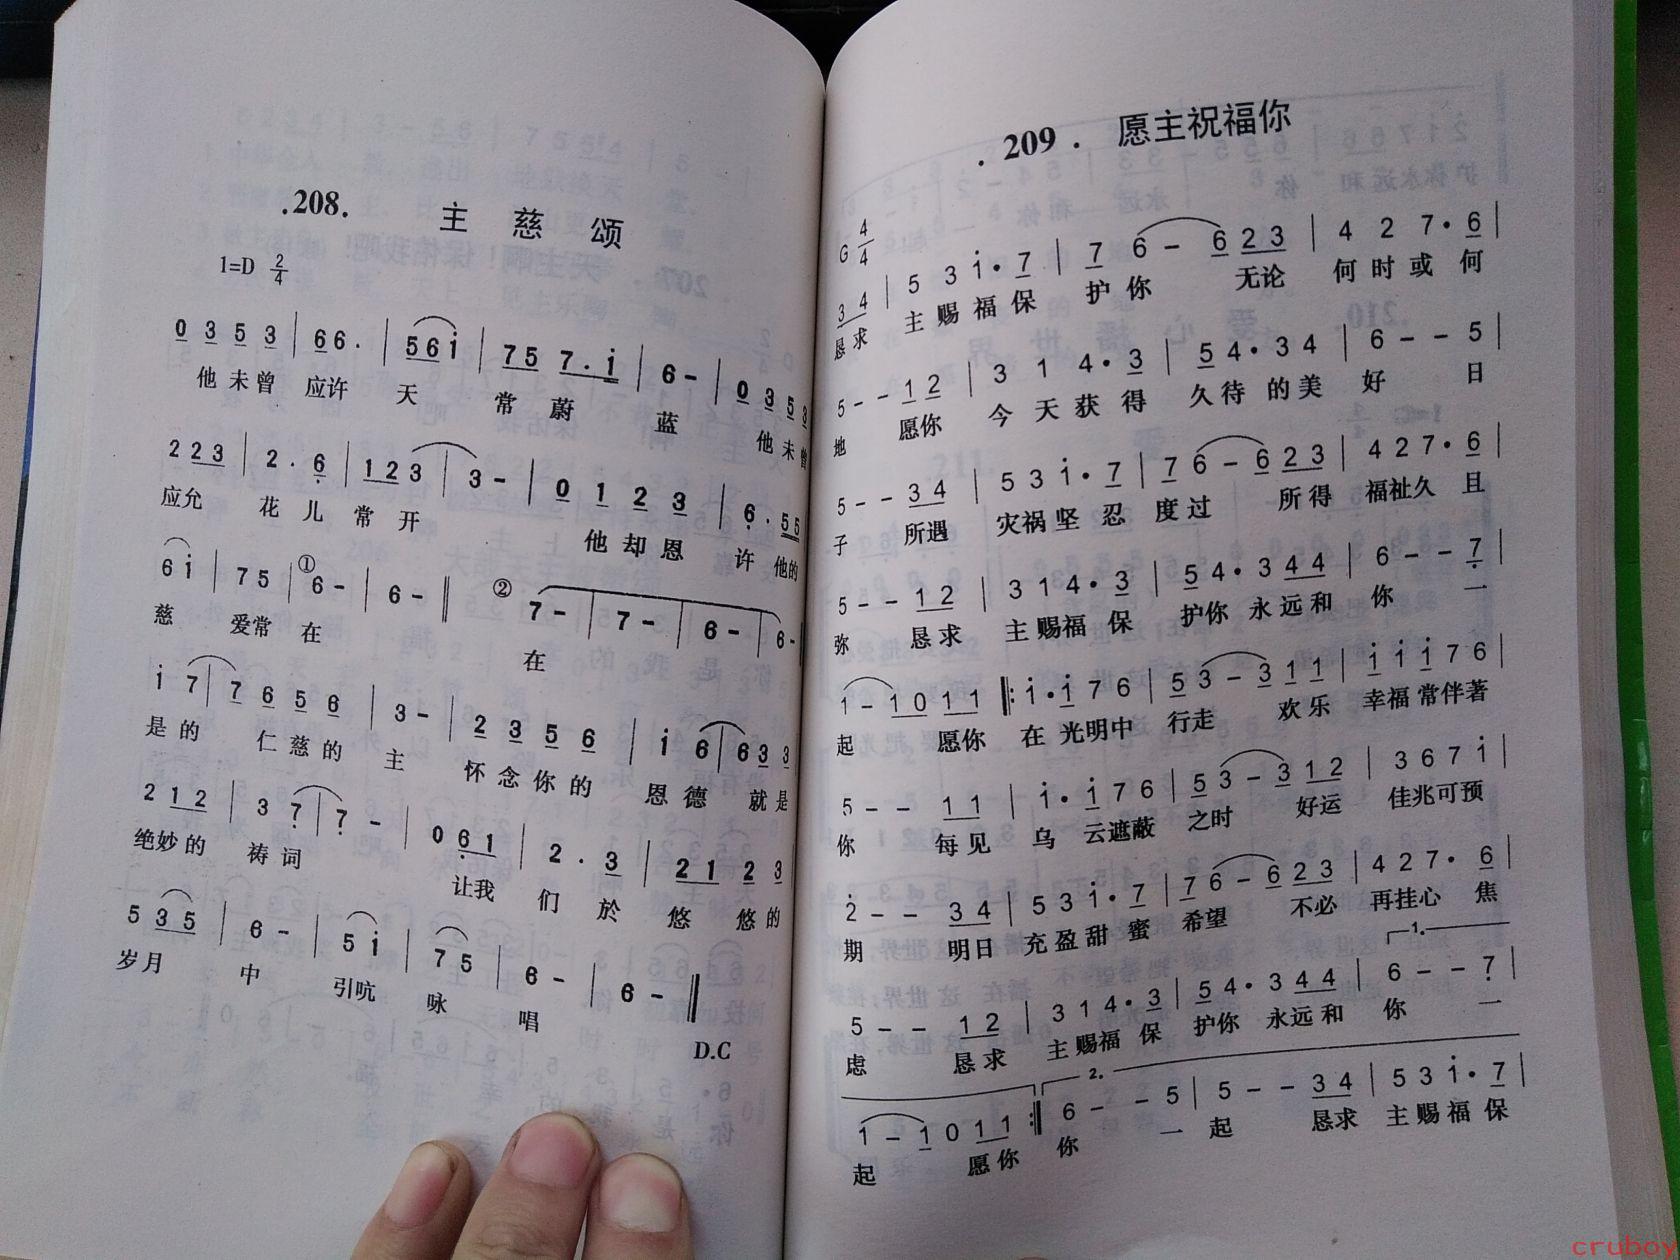 .208. 主 慈 颂
1=D 2/4
0 3 5 3 | 6 6 . | 5 6 i | 7 5 7 . i | 6 - | 0 3 5 3
他 未曾 应许 天 常 蔚 蓝 他 未 曾
2 2 3 | 2 . 6 | 1 2 3 | 3 - | 0 1 2 3 | 6 . 5 5
应允 花 儿 常 开 他 却 恩 许 他的
6 i | 7 5 | ① 6 - | 6 - ‖ ② 7 - | 7 - | 6 - | 6 -
慈 爱常 在 在
i 7 | 7 6 5 6 | 3 - | 2 3 5 6 | i 6 | 6 3 3
是 的 仁 慈 的 主 怀 念 你 的 恩 德 就 是
2 1 2 | 3 7 | 7 - | 0 6 1 | 2 . 3 | 2 1 2 3
绝妙 的 祷 词 让我 们 於 悠 悠 的
5 3 5 | 6 - | 5 i | 7 5 | 6 - | 6 - ‖
岁 月 中 引吭 咏 唱
D.C
. 209 . 愿主祝福你
G 4/4
3 4 | 5 3 i · 7 | 7 6 - 6 2 3 | 4 2 7 · 6 |
恳 求 主 赐 福 保 护 你 无论 何 时 或 何
5 - - 1 2 | 3 1 4 · 3 | 5 4 · 3 4 | 6 - - 5
地 愿你 今 天 获 得 久 待 的 美 好 日
5 - - 3 4 | 5 3 i · 7 | 7 6 - 6 2 3 | 4 2 7 · 6 |
子 所遇 灾祸 坚 忍 度 过 所 得 福祉 久 且
5 - - 1 2 | 3 1 4 · 3 | 5 4 · 3 4 4 | 6 - - 7 |
弥 恳 求 主 赐福 保 护你 永 远 和 你 一
1 - 1 0 1 1 ‖: i · i 7 6 | 5 3 - 3 1 1 | i i i 7 6 |
起 愿你 在 光明中 行走 欢 乐 幸福 常伴著
5 - - 1 1 | i · i 7 6 | 5 3 - 3 1 2 | 3 6 7 i |
你 每 见 乌 云遮蔽 之时 好运 佳兆可预
2 - - 3 4 | 5 3 i · 7 | 7 6 - 6 2 3 | 4 2 7 · 6 |
期 明日 充 盈 甜 蜜 希望 不必 再挂心 焦
1.
5 - - 1 2 | 3 1 4 · 3 | 5 4 · 3 4 4 | 6 - - 7 |
虑 恳 求 主 赐福 保 护你 永远 和 你 一
2.
1 - 1 0 1 1 :‖ 6 - - 5 | 5 - - 3 4 | 5 3 i · 7 |
起 愿 你 你 一 起 恳求 主 赐 福 保
cruboy